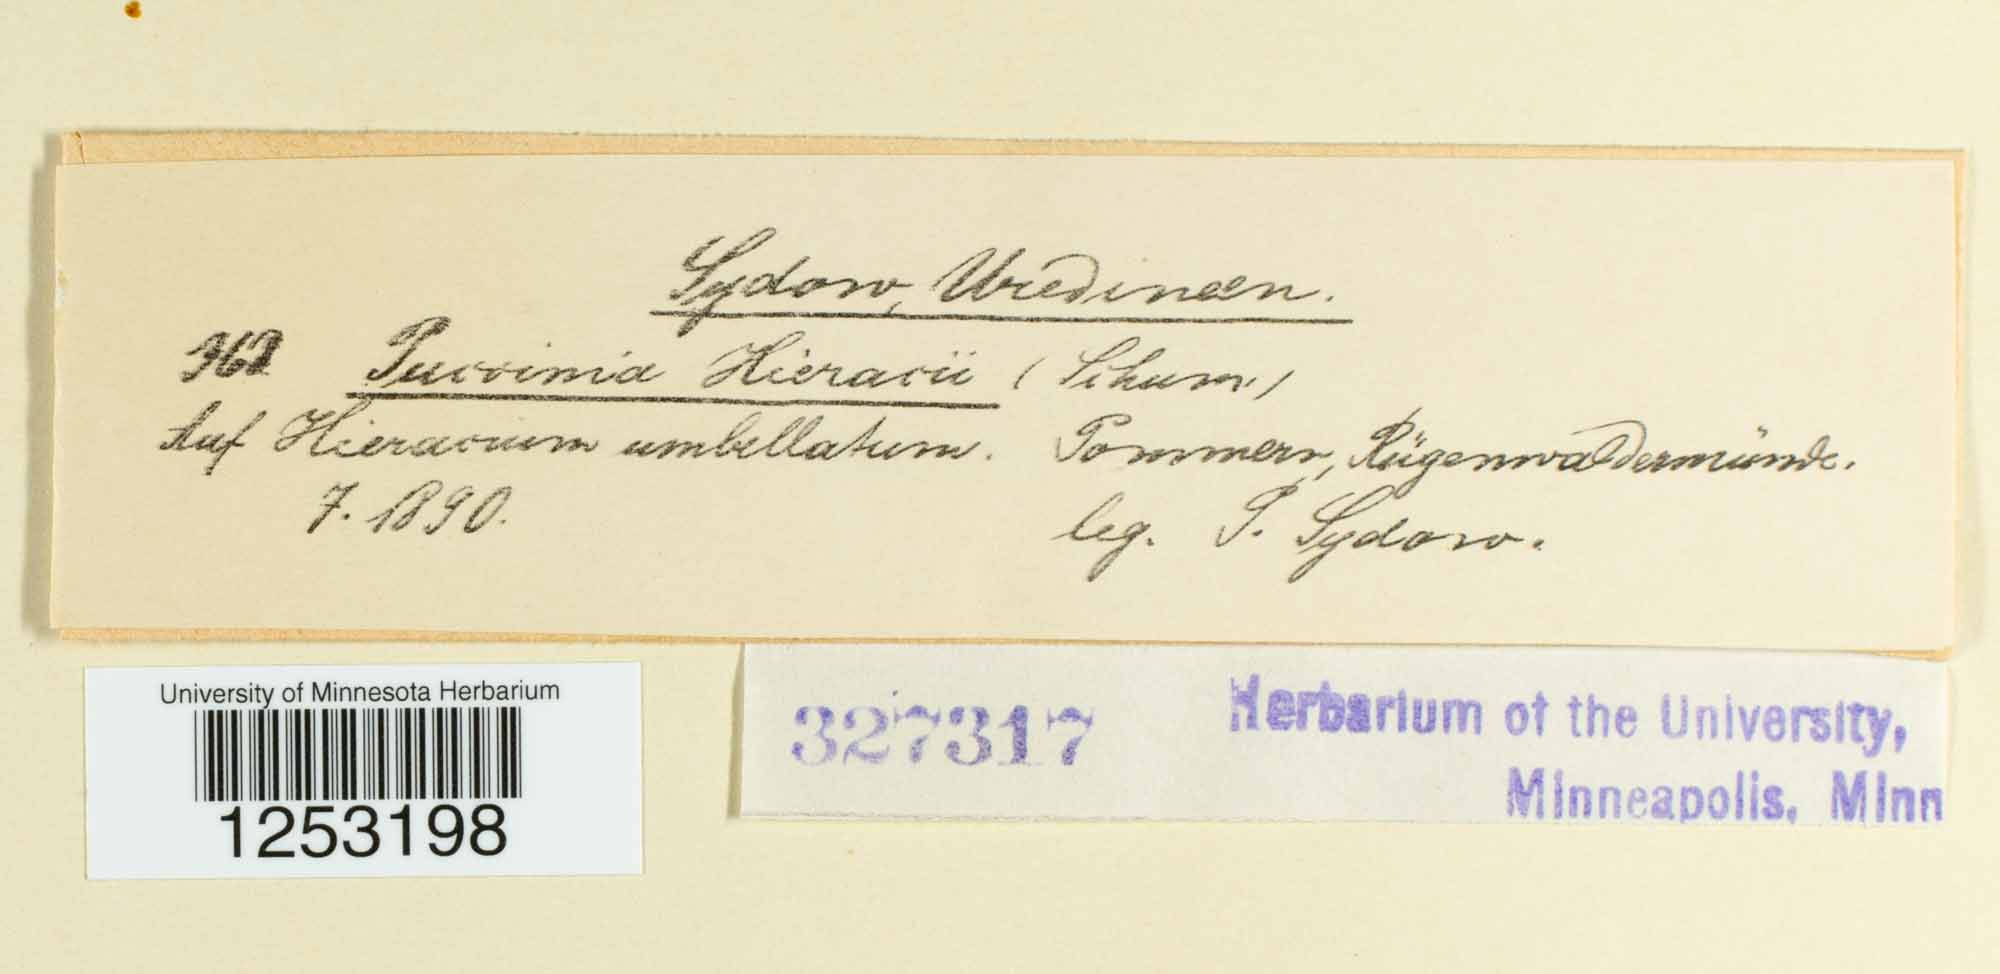 Sydow, Uredineen.
Puccinia Hieracii (Schum.)
Auf Hieracium umbellatum. Pommern, Rügenwaldermünde.
7. 1890. leg. P. Sydow.
University of Minnesota Herbarium
1253198
327317 Herbarium of the University,
Minneapolis, Minn